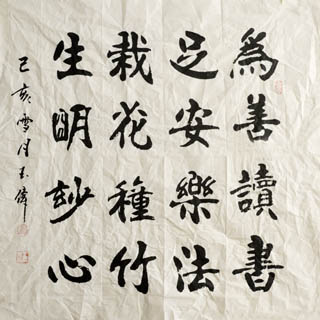 為善讀書
足安樂法
栽花種竹
生明妙心
己亥雪月玉偉